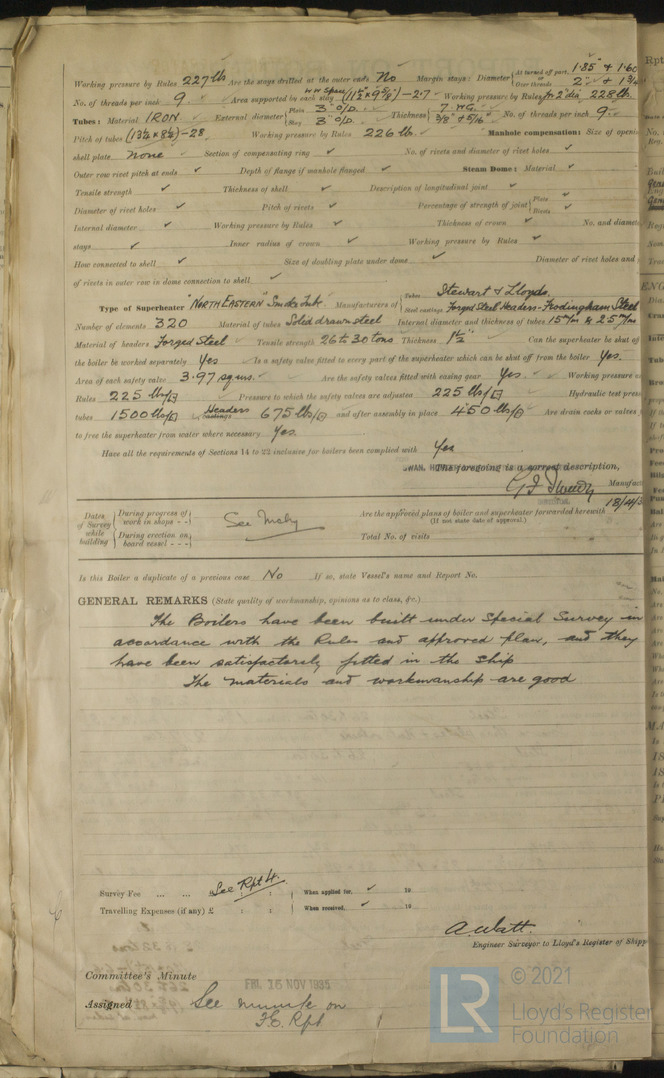 Working pressure by Rules 227 lbs Are the stays drilled at the outer ends No Margin stays: Diameter { At turned off part, 1.85" & 1.60 or Over threads 2" & 1 3/4
No. of threads per inch 9. Area supported by each stay W.W. Space (11 1/2" x 9 5/8") - 2.7 Working pressure by Rules for 2" dia 228 lb.
Tubes: Material IRON External diameter { Plain 3" O/D. Stay 3" O/D. Thickness { 7 W.G. 3/8" & 5/16" No. of threads per inch 9
Pitch of tubes (13 1/2 x 8 1/2) - 28 Working pressure by Rules 226 lb. Manhole compensation: Size of openi
shell plate None Section of compensating ring ✓ No. of rivets and diameter of rivet holes ✓
Outer row rivet pitch at ends ✓ Depth of flange if manhole flanged ✓ Steam Dome: Material ✓
Tensile strength ✓ Thickness of shell ✓ Description of longitudinal joint ✓
Diameter of rivet holes ✓ Pitch of rivets ✓ Percentage of strength of joint { Plate ✓ Rivets ✓
Internal diameter ✓ Working pressure by Rules ✓ Thickness of crown ✓ No. and diamete
stays ✓ Inner radius of crown ✓ Working pressure by Rules ✓
How connected to shell ✓ Size of doubling plate under dome ✓ Diameter of rivet holes and
of rivets in outer row in dome connection to shell ✓
Type of Superheater "NORTH EASTERN" Smoke Tube Manufacturers of { Tubes Stewart & Lloyds. Steel castings Forged Steel Headers - Frodingham Steel
Number of elements 320 Material of tubes Solid drawn steel Internal diameter and thickness of tubes 15 m/m & 2.5 m/m
Material of headers Forged Steel Tensile strength 26 to 30 tons Thickness 1 1/2" Can the superheater be shut of
the boiler be worked separately Yes Is a safety valve fitted to every part of the superheater which can be shut off from the boiler Yes.
Area of each safety valve 3.97 sq ins. Are the safety valves fitted with easing gear Yes. Working pressure a
Rules 225 lbs/□" Pressure to which the safety valves are adjusted 225 lbs/□" Hydraulic test press
tubes 1500 lbs/□" Headers castings 675 lbs/□" and after assembly in place 450 lbs/□" Are drain cocks or valves
to free the superheater from water where necessary Yes.
Have all the requirements of Sections 14 to 22 inclusive for boilers been complied with Yes
The foregoing is a correct description,
Manufact
Dates of Survey while building { During progress of work in shops - - During erection on board vessel - - - See Mchy Are the approved plans of boiler and superheater forwarded herewith 18/4/3
(If not state date of approval.)
Total No. of visits
Is this Boiler a duplicate of a previous case No If so, state Vessel's name and Report No.
GENERAL REMARKS (State quality of workmanship, opinions as to class, &c.)
The Boilers have been built under Special Survey in
accordance with the Rules and approved plan, and they
have been satisfactorily fitted in the ship
The materials and workmanship are good
Survey Fee ... ... See Rpt 4. : : When applied for, ✓ 19
Travelling Expenses (if any) £ : : When received, ✓ 19
A. Watt.
Engineer Surveyor to Lloyd's Register of Shipp
Committee's Minute FRI. 15 NOV 1935
Assigned See minute on
F.E. Rpt
LR © 2021
Lloyd's Register
Foundation